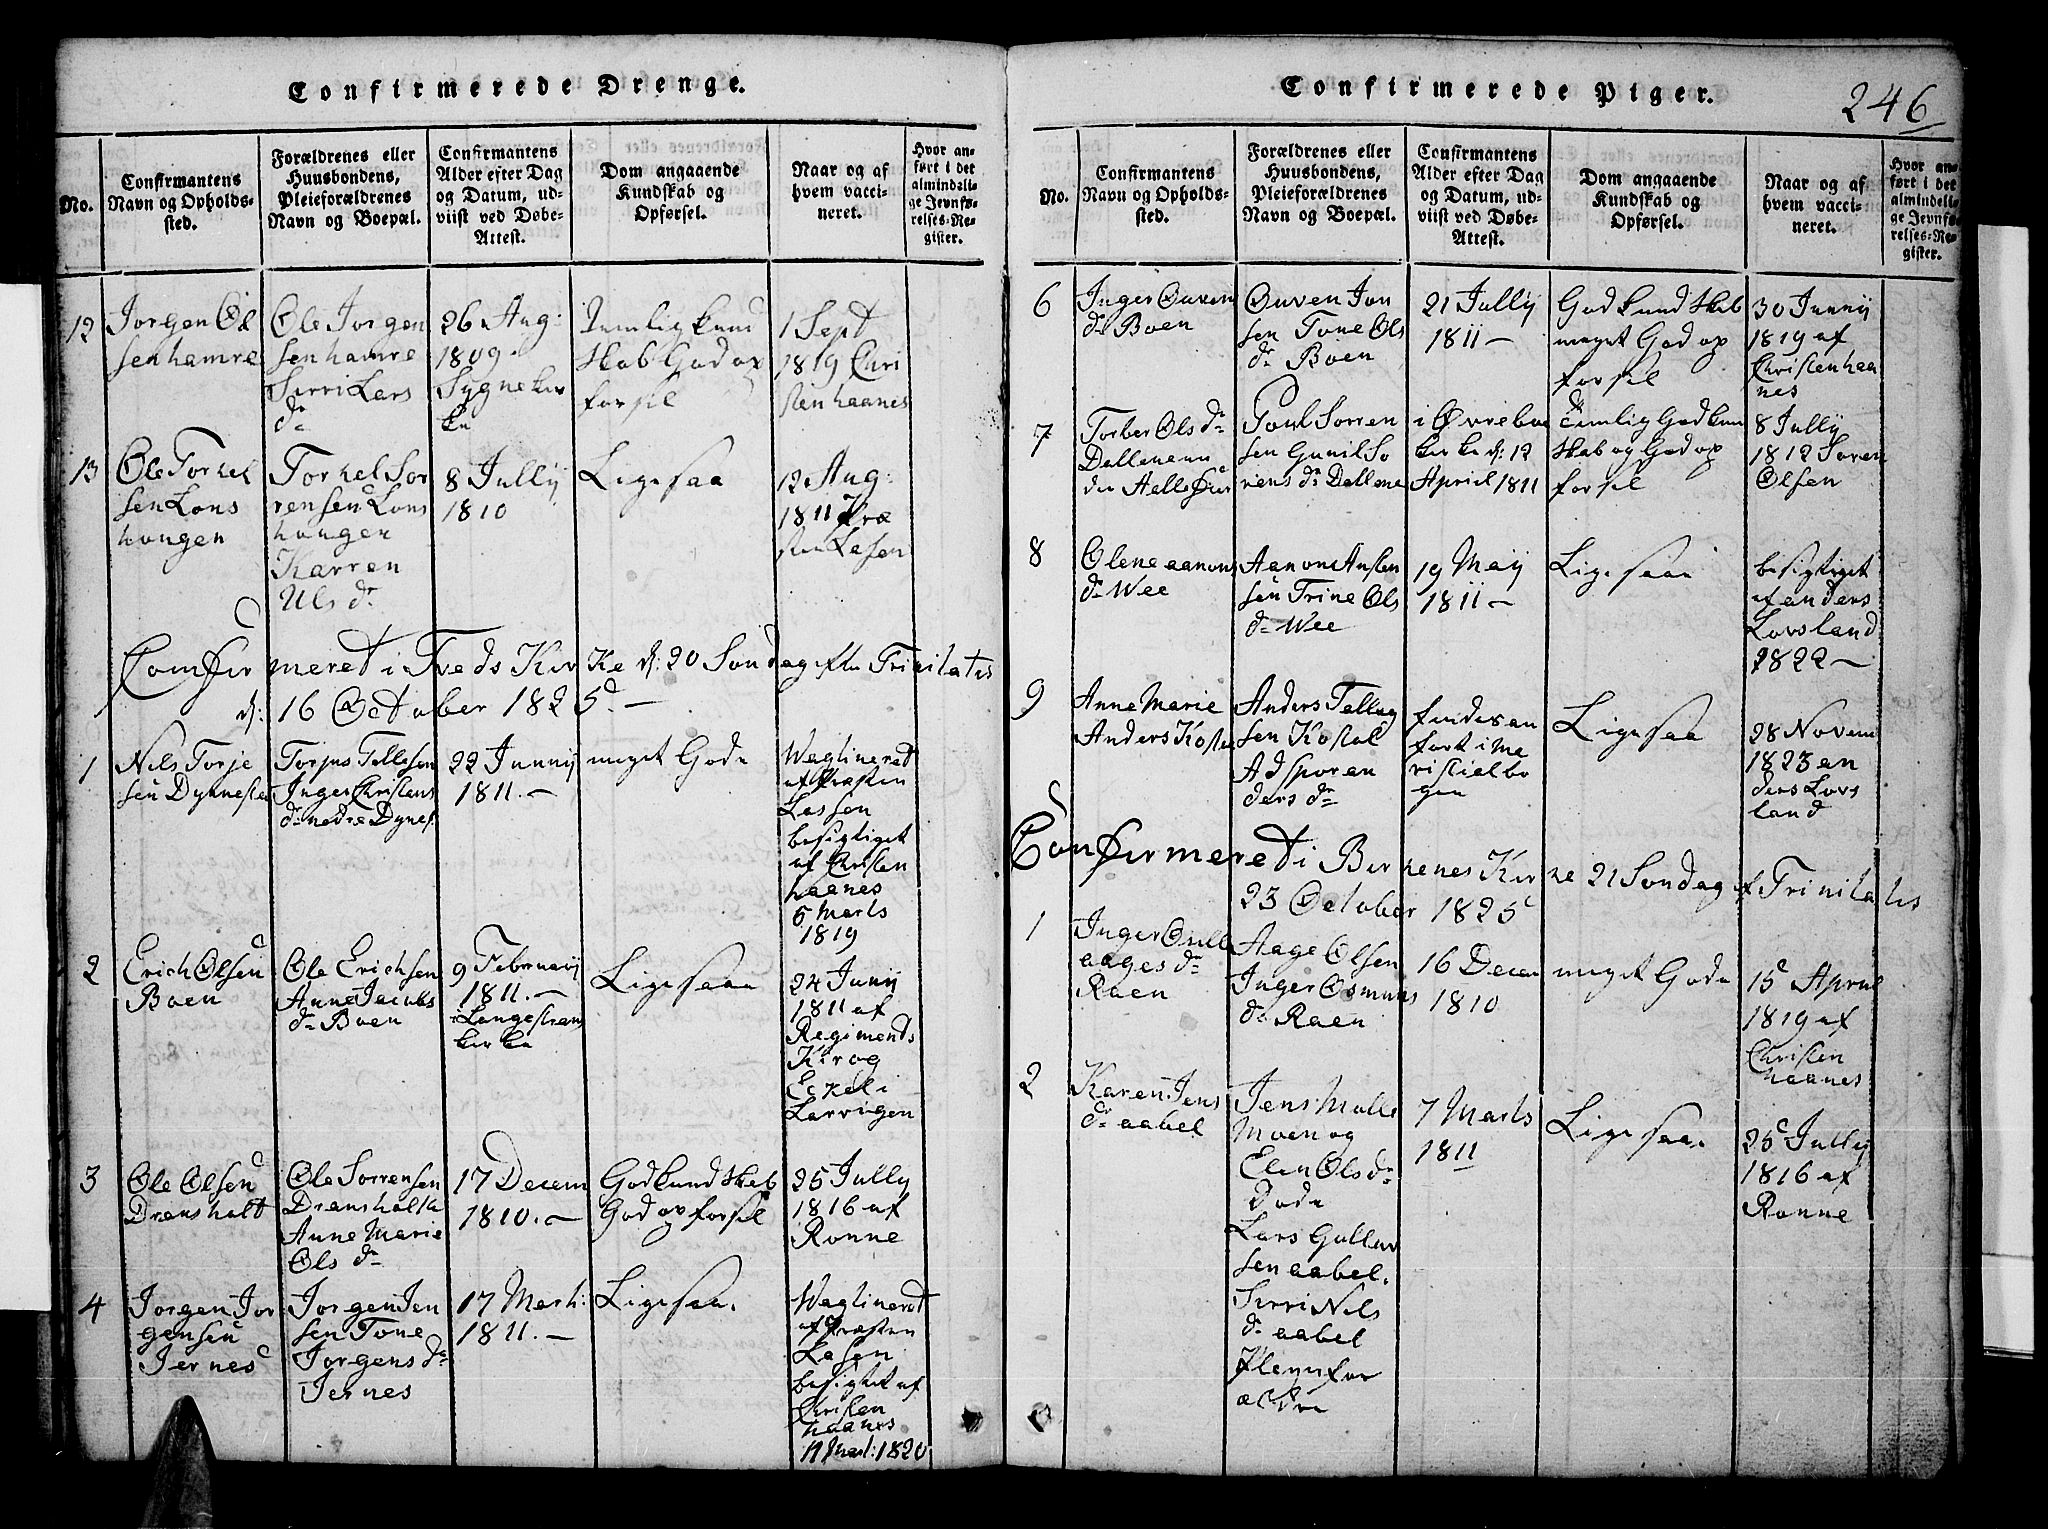 Confirmerede Drenge.
No.
Confirmantens
Navn og Opholds-
sted.
Forældrenes eller
Huusbondens,
Pleieforældrenes
Navn og Boepæl.
Confirmantens
Alder efter Dag
og Datum, ud-
viist ved Døbe-
Attest.
Dom angaaende
Kundskab og
Opførsel.
Naar og af
hvem vacci-
neret.
Hvor an-
ført i det
almindeli-
ge Jevnfø-
relses-Re-
gister.
12
Jorgen Ol
sen hamre
Ole Jorgen
sen hamre
Sirri Lars
dr
26 Aug:
1809
Sygne kir
ke
Temlig kund
skab God op
forsel
1 Sept
1819 Chri
sten haanes
13
Ole Torkel
sen Lons
hougen
Torkel Sor
rensen Lons
hougen
Karren
Uls dr
8 Jullÿ
1810
Ligesaa
12 Aug:
1811 Præ
sten Lasen
Comfirmeret i Tveds Kirke d: 20 Sondag efter Trinitatis
d: 16 October 1825. —
1
Nils Torje
sen Dynnesten
Torjus Tellesen
Inger Christens
dr nedre Dynes.
22 Junnÿ
1811. —
meget Gode
Waglineret
af Præsten
Lassen
besigtiget
af Christen
haanes
5 Marts
1819
2
Erich Olsen
Boen
Ole Erichsen
Anne Jacobs
dr Boen
9 Februarÿ
1811. —
i Langestrans
kirke
Ligesaa
24 Junÿ
1811 af
Regiments
Kirog
Eckel i
Larvigen
3
Ole Olsen
Dransholt
Ole Sorrensen
Dransholth
Anne Marie
Ols dr
17 Decem
1810. —
God kundskab
God opforsel
25 Jullÿ
1816 af
Ronne
4
Jorgen Jor
gensen
Jernes
Jorgen Jen
sen Tone
Jorgens dr
Jernes
17 Mart:
1811. —
Ligesaa.
Waglineret
af Præsten
Lasen
besigtet af
Christen
haanes
11 Mart: 1820
Confirmerede Piger.
246
No.
Confirmantens
Navn og Opholds-
sted.
Forældrenes eller
Huusbondens,
Pleieforældrenes
Navn og Boepæl.
Confirmantens
Alder efter Dag
og Datum, ud-
viist ved Døbe-
Attest.
Dom angaaende
Kundskab og
Opførsel.
Naar og af
hvem vacci-
neret.
Hvor an-
ført i det
almindeli-
ge Jevnfø-
relses-Re-
gister.
6
Inger Ouven
dr Boen
Ouven Jon
sen Tone Ols
dr Boen
21 Jullÿ
1811 —
God kundskab
meget God op
forsel
30 Junnÿ
1819 af
Christen haa
nes
7
Torber Ols dr
Dallenenn
Poul Sorren
sen Gunil So
rens dr Dallene
i Øvreboe
kirke d: 12
April 1811
Temlig God kun
skab og God op
forsel
8 Jullÿ
1812 Soren
Olsen
8
Olene aanons
dr Wee
Aanon Ansten
sen Trine Ols
dr Wee
19 Maÿ
1811 —
Ligesaa
besigtiget
af anders
Lovsland
1822 —
9
Anne Marie
Anders Kostøl
Anders Telleg
sen Kostøl
Adsporen
ders dr
findes an
fort i Me
nistielbo
gen
Ligesaa
28 Novem
1823 an
ders Lovs
land
Confirmeret i Birkenes Kirke 21 Sondag ef Trinitatis
23 October 1825
1
Inger Gull
aages dr
Raen
Aage Olsen
Inger Osmuns
dr Raen
16 Decem
1810
meget Gode
15 April
1819 af
Christen
haanes
2
Karen Jens
dr aabel
Jens Malle
Moen og
Elen Ols dr
Dode
Lars Gullov
sen aabel.
Sirri Nils
dr aabel
Plenifor
ældre
7 Marts
1811
Ligesaa.
25 Jullÿ
1816 af
Ronne